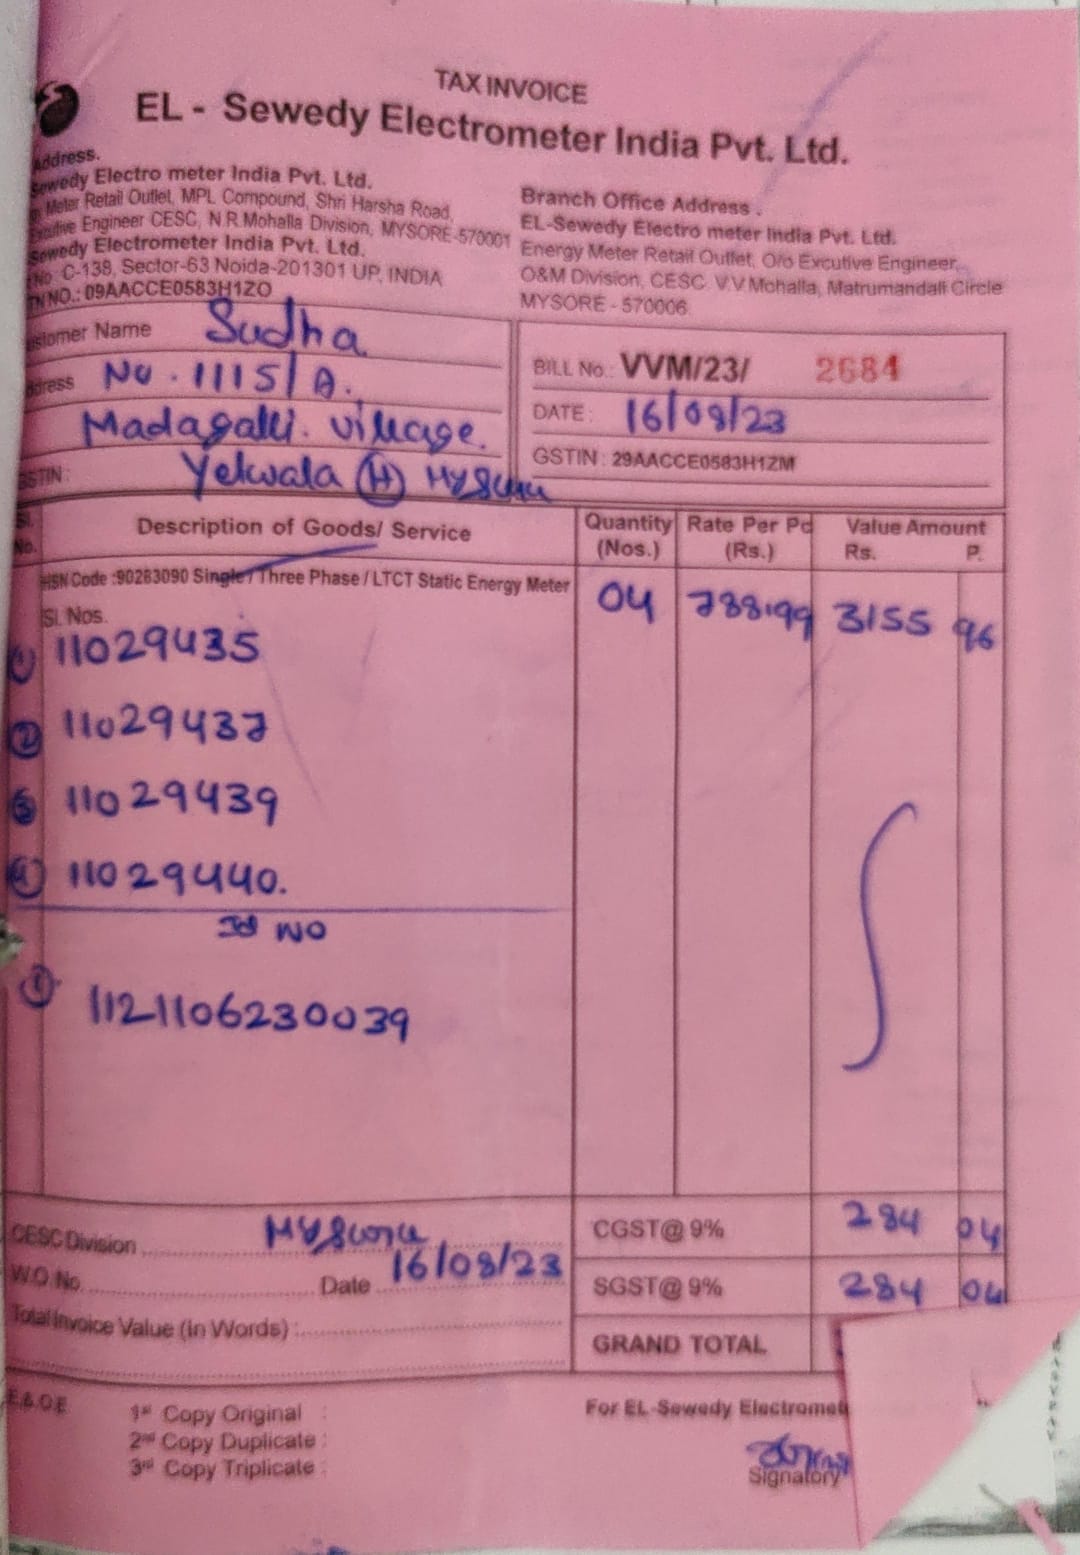 TAX INVOICE
EL - Sewedy Electrometer India Pvt. Ltd.
Address.
Sewedy Electro meter India Pvt. Ltd.
Meter Retail Outlet, MPL Compound, Shri Harsha Road,
Engineer CESC, N.R.Mohalla Division, MYSORE-570001
Sewedy Electrometer India Pvt. Ltd.
No C-138, Sector-63 Noida-201301 UP, INDIA
NO.: 09AACCE0583H1ZO
Branch Office Address .
EL-Sewedy Electro meter India Pvt. Ltd.
Energy Meter Retail Outlet, O/o Excutive Engineer,
O&M Division, CESC V.V.Mohalla, Matrumandali Circle
MYSORE - 570006
Customer Name Sudha
Address No. 1115/A.
Madagalli. village.
GSTIN: Yelwala (H) Mysuru
BILL No.: VVM/23/ 2684
DATE: 16/08/23
GSTIN : 29AACCE0583H1ZM
Sl. No. Description of Goods/ Service Quantity (Nos.) Rate Per Pc (Rs.) Value Amount Rs. P.
HSN Code :90283090 Single / Three Phase / LTCT Static Energy Meter 04 788.99 3155 96
Sl. Nos.
① 11029435
② 11029437
③ 11029439
④ 11029440.
Id NO
① 1121106230039
CESC Division Mysore
W.O.No. Date 16/08/23
Total Invoice Value (In Words) :
CGST@ 9% 284 04
SGST@ 9% 284 04
GRAND TOTAL
E.&.O.E
1st Copy Original :
2nd Copy Duplicate :
3rd Copy Triplicate :
For EL-Sewedy Electromet
Signatory